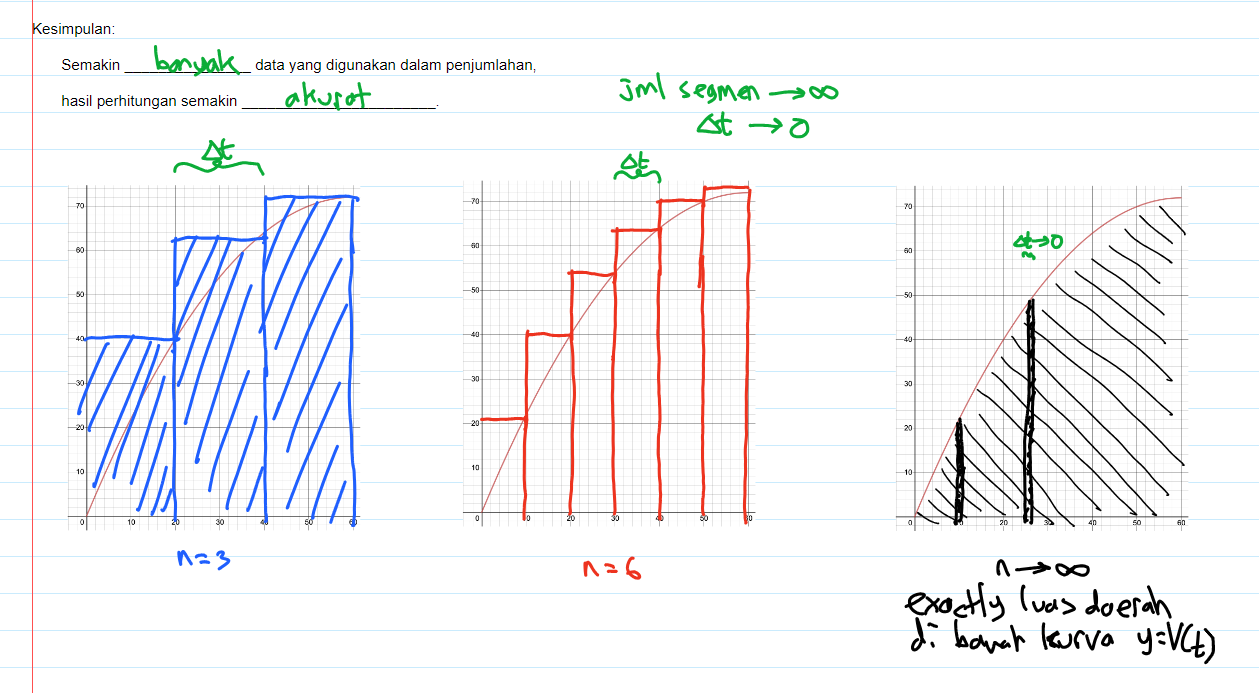 Kesimpulan:
Semakin banyak data yang digunakan dalam penjumlahan,
hasil perhitungan semakin akurat.
jml segmen → ∞
Δt → 0
Δt
70
60
50
40
30
20
10
0 10 20 30 40 50 60
n = 3
Δt
70
60
50
40
30
20
10
0 10 20 30 40 50 60
n = 6
Δt→0
70
60
50
40
30
20
10
0 10 20 30 40 50 60
n → ∞
exactly luas daerah
di bawah kurva y=V(t)